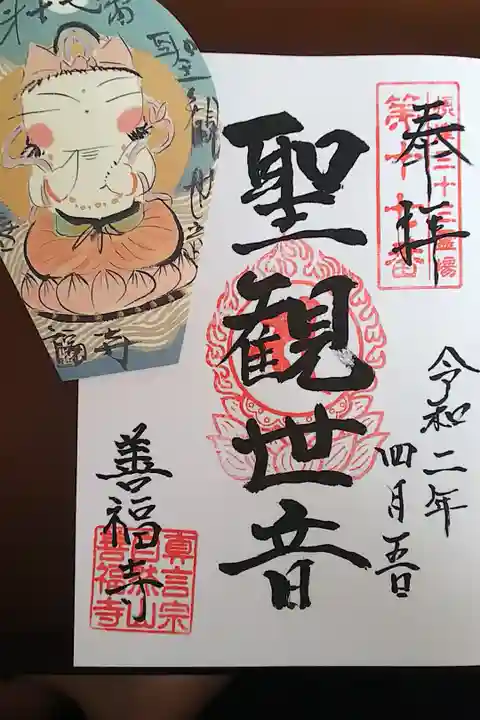 奉拝
聖観世音
令和二年
四月五日
善福寺
真言宗
自然山
善福寺
聖観世音
福寺